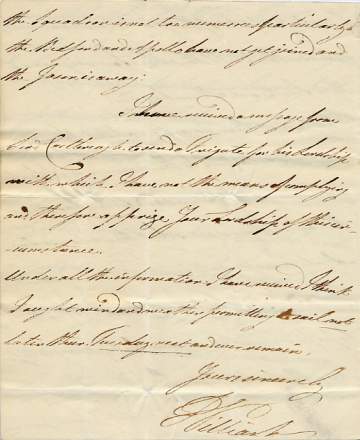 the Squadron is not too numerous particularly as
the Bedford and Apollo have not yet joined and
the Jason is away;
I have received a message from
Lord Cathcart to send a Frigate for his Lordship
with which I have not the means of complying
and therefore apprize Your Lordship of this cir-
-cumstance.
Under all the information I have received I think
I ought wind and weather permitting to sail not
later than Tuesday next and ever remain,
Yours sincerely
William